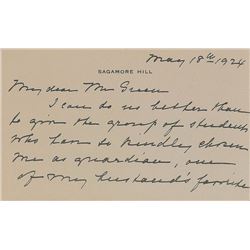 May 18th 1924
SAGAMORE HILL
My dear Mr Green
I can do no better than
to give the group of students
who have so kindly chosen
me as guardian, one
of my husband's favorite